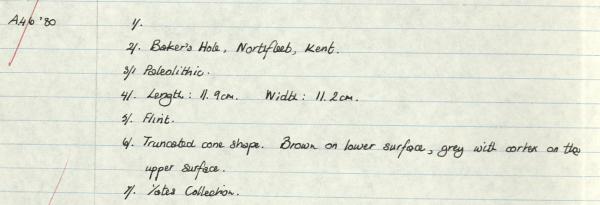 A46'80 1/.
2/. Baker's Hole, Northfleet, Kent.
3/. Paleolithic.
4/. Length: 11.9cm. Width: 11.2cm.
5/. Flint.
6/. Truncated cone shape. Brown on lower surface, grey with cortex on the
upper surface.
7/. Yates Collection.